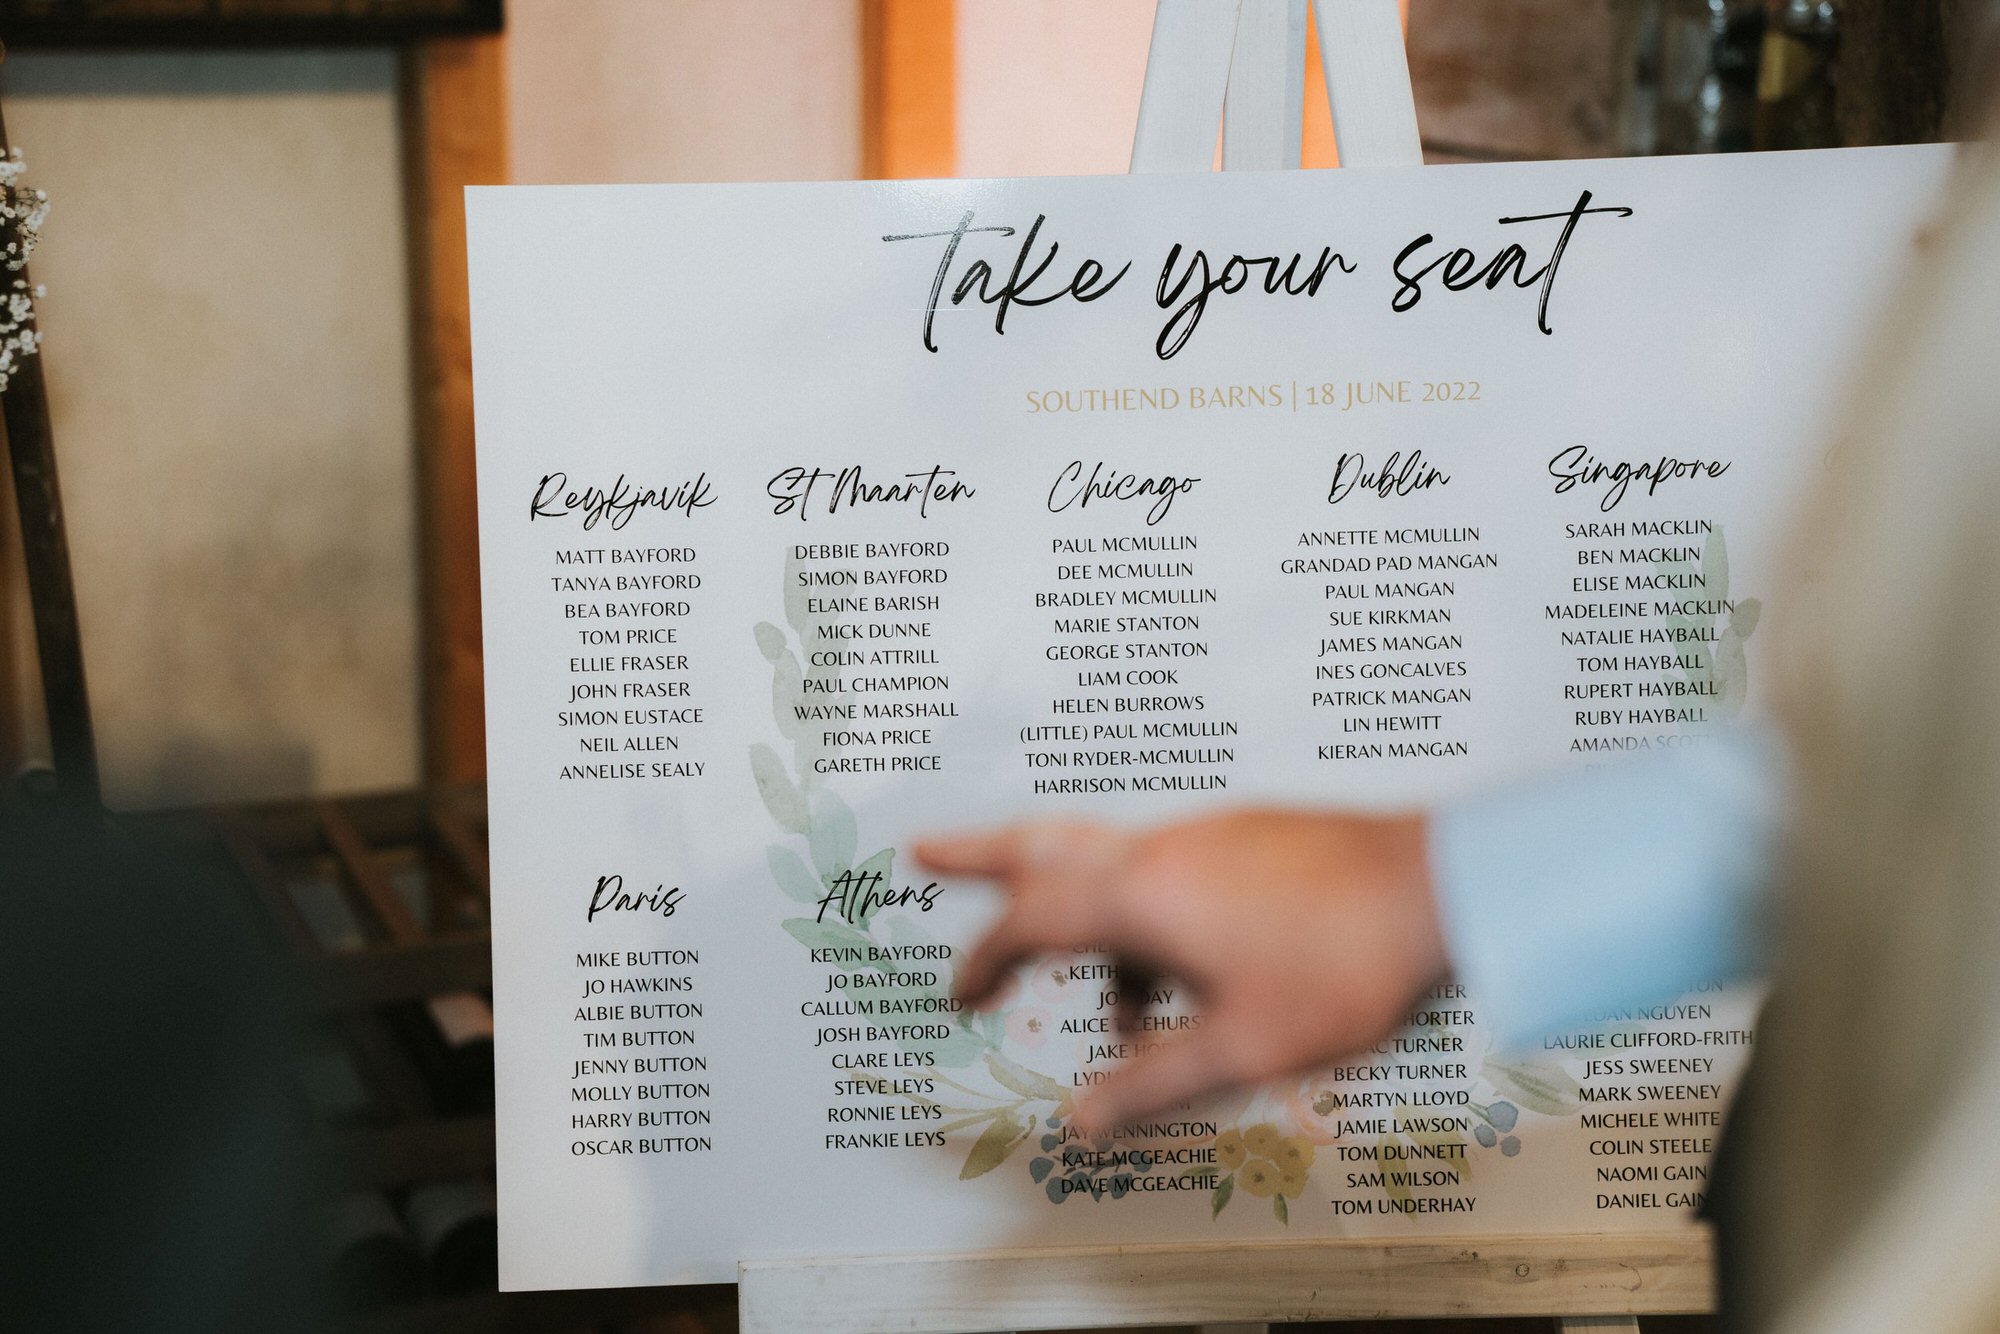 take your seat
SOUTHEND BARNS | 18 JUNE 2022
Reykjavík
MATT BAYFORD
TANYA BAYFORD
BEA BAYFORD
TOM PRICE
ELLIE FRASER
JOHN FRASER
SIMON EUSTACE
NEIL ALLEN
ANNELISE SEALY
St Maarten
DEBBIE BAYFORD
SIMON BAYFORD
ELAINE BARISH
MICK DUNNE
COLIN ATTRILL
PAUL CHAMPION
WAYNE MARSHALL
FIONA PRICE
GARETH PRICE
Chicago
PAUL MCMULLIN
DEE MCMULLIN
BRADLEY MCMULLIN
MARIE STANTON
GEORGE STANTON
LIAM COOK
HELEN BURROWS
(LITTLE) PAUL MCMULLIN
TONI RYDER-MCMULLIN
HARRISON MCMULLIN
Dublin
ANNETTE MCMULLIN
GRANDAD PAD MANGAN
PAUL MANGAN
SUE KIRKMAN
JAMES MANGAN
INES GONCALVES
PATRICK MANGAN
LIN HEWITT
KIERAN MANGAN
Singapore
SARAH MACKLIN
BEN MACKLIN
ELISE MACKLIN
MADELEINE MACKLIN
NATALIE HAYBALL
TOM HAYBALL
RUPERT HAYBALL
RUBY HAYBALL
AMANDA SCOTT
Paris
MIKE BUTTON
JO HAWKINS
ALBIE BUTTON
TIM BUTTON
JENNY BUTTON
MOLLY BUTTON
HARRY BUTTON
OSCAR BUTTON
Athens
KEVIN BAYFORD
JO BAYFORD
CALLUM BAYFORD
JOSH BAYFORD
CLARE LEYS
STEVE LEYS
RONNIE LEYS
FRANKIE LEYS
KEITH
ALICE
JAKE
JAY WENNINGTON
KATE MCGEACHIE
DAVE MCGEACHIE
TURNER
BECKY TURNER
MARTYN LLOYD
JAMIE LAWSON
TOM DUNNETT
SAM WILSON
TOM UNDERHAY
NGUYEN
LAURIE CLIFFORD-FRITH
JESS SWEENEY
MARK SWEENEY
MICHELE WHITE
COLIN STEELE
NAOMI GAIN
DANIEL GAIN